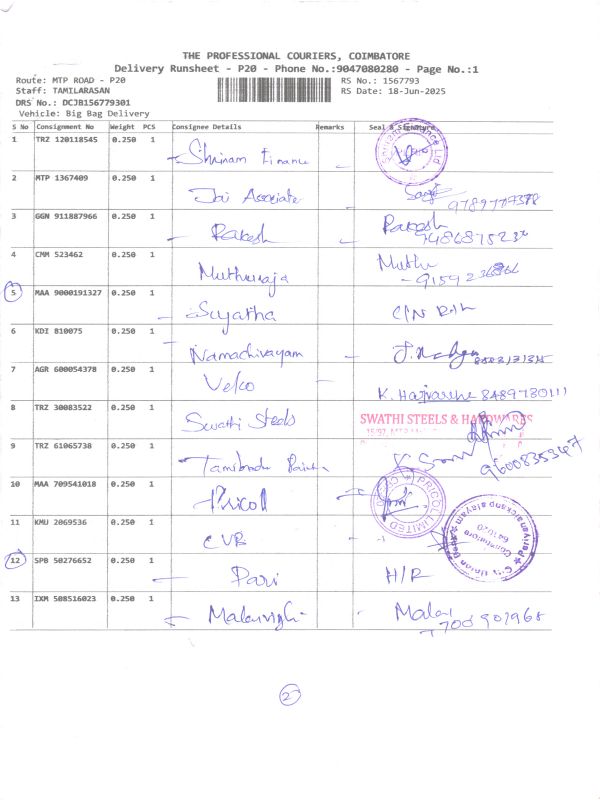 THE PROFESSIONAL COURIERS, COIMBATORE
Delivery Runsheet - P20 - Phone No.:9047080280 - Page No.:1
Route: MTP ROAD - P20 RS No.: 1567793
Staff: TAMILARASAN RS Date: 18-Jun-2025
DRS No.: DCJB156779301
Vehicle: Big Bag Delivery
S No Consignment No Weight PCS Consignee Details Remarks Seal & Signature
1 TRZ 120118545 0.250 1 Shriram Finance
2 MTP 1367409 0.250 1 Jai Associate
3 GGN 911887966 0.250 1 Rakesh Rakesh
4 CMM 523462 0.250 1 Muthuraja Muthu
5 MAA 9000191327 0.250 1 Sujatha C/N
6 KDI 810075 0.250 1 Namachivayam
7 AGR 600054378 0.250 1 Velco 8489780111
8 TRZ 30083522 0.250 1 Swathi Steels SWATHI STEELS & HARDWARES
9 TRZ 61065738 0.250 1 Tamilnadu 9600835347
10 MAA 709541018 0.250 1 Pricoll PRICOL LIMITED
11 KMU 2069536 0.250 1 CVB
12 SPB 50276652 0.250 1 Pari H/R
13 IXM 508516023 0.250 1
2